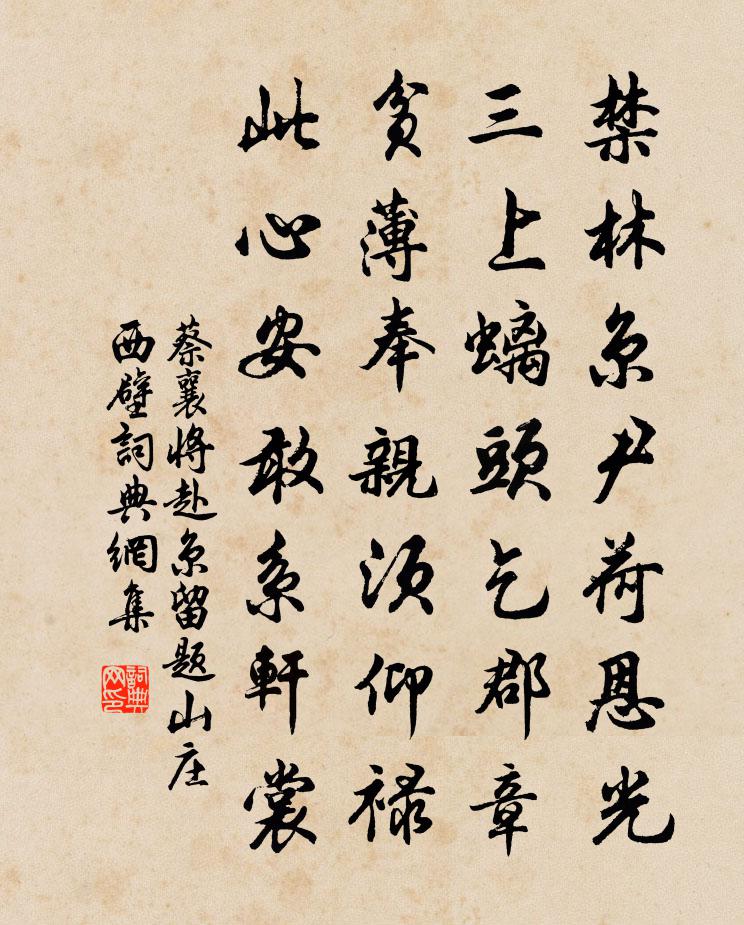 禁林京尹荷恩光
三上螭頭乞郡章
貧薄奉親須仰禄
此心安敢系軒裳
蔡襄將赴京留題山庄
西壁詞典網集
詞典网印